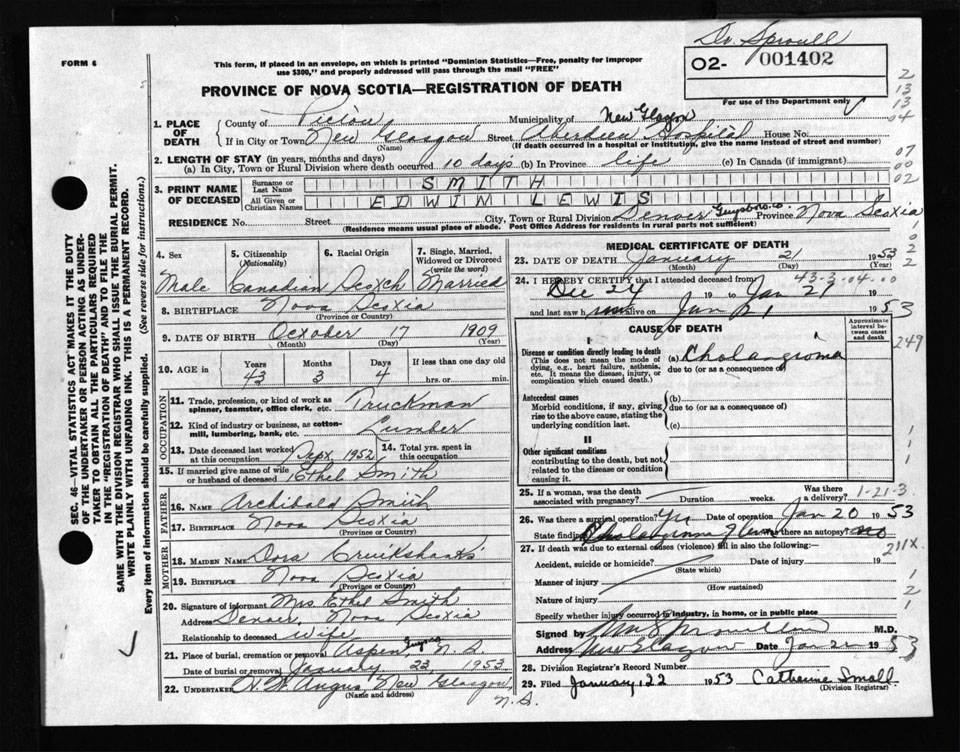 Dr Sproull
FORM 6
This form, if placed in an envelope, on which is printed "Dominion Statistics—Free, penalty for improper
use $300," and properly addressed will pass through the mail "FREE"
02- 001402
For use of the Department only
PROVINCE OF NOVA SCOTIA—REGISTRATION OF DEATH
1. PLACE OF DEATH
County of Pictou Municipality of New Glasgow
If in City or Town New Glasgow Street Aberdeen Hospital House No.
(Name) (If death occurred in a hospital or institution, give the name instead of street and number)
2. LENGTH OF STAY (in years, months and days)
(a) In City, Town or Rural Division where death occurred 10 days (b) In Province life (c) In Canada (if immigrant)
3. PRINT NAME OF DECEASED
Surname or Last Name SMITH
All Given or Christian Names EDWIN LEWIS
RESIDENCE No. Street City, Town or Rural Division Denver Guysboro Co. Province Nova Scotia
(Residence means usual place of abode. Post Office Address for residents in rural parts not sufficient)
4. Sex Male
5. Citizenship (Nationality) Canadian
6. Racial Origin Scotch
7. Single, Married, Widowed or Divorced (write the word) Married
8. BIRTHPLACE Nova Scotia
(Province or Country)
9. DATE OF BIRTH October 17 1909
(Month) (Day) (Year)
10. AGE in Years 43 Months 3 Days 4 If less than one day old hrs. or min.
OCCUPATION
11. Trade, profession, or kind of work as spinner, teamster, office clerk, etc. Truckman
12. Kind of industry or business, as cotton-mill, lumbering, bank, etc. Lumber
13. Date deceased last worked at this occupation Sept. 1952
14. Total yrs. spent in this occupation
15. If married give name of wife or husband of deceased Ethel Smith
FATHER
16. NAME Archibald Smith
17. BIRTHPLACE Nova Scotia
MOTHER
18. MAIDEN NAME Dora Cruikshanks
19. BIRTHPLACE Nova Scotia
(Province or Country)
20. Signature of informant Mrs Ethel Smith
Address Denver, Nova Scotia
Relationship to deceased wife
21. Place of burial, cremation or removal Aspen, Guys N.S.
Date of burial or removal January 23 1953.
22. UNDERTAKER New Glasgow
(Name and address)
N.S.
MEDICAL CERTIFICATE OF DEATH
23. DATE OF DEATH January 21 1953
(Month) (Day) (Year)
43-3-04-00
24. I HEREBY CERTIFY that I attended deceased from
Dec 24 19 to Jan 21 19
and last saw him alive on Jan 21 1953
CAUSE OF DEATH
Approximate interval between onset and death
I
Disease or condition directly leading to death (a) Cholangioma
(This does not mean the mode of dying, e.g., heart failure, asthenia, etc. It means the disease, injury, or complication which caused death.)
due to (or as a consequence of)
Antecedent causes
Morbid conditions, if any, giving rise to the above cause, stating the underlying condition last.
(b)
due to (or as a consequence of)
(c)
II
Other significant conditions
contributing to the death, but not related to the disease or condition causing it.
249
25. If a woman, was the death associated with pregnancy? Duration weeks. Was there a delivery?
1-21-3
26. Was there a surgical operation? Yes Date of operation Jan 20 1953
State findings Cholangioma of liver Was there an autopsy? no
27. If death was due to external causes (violence) fill in also the following:—
Accident, suicide or homicide? Date of injury 19
(State which)
Manner of injury
(How sustained)
Nature of injury
Specify whether injury occurred in industry, in home, or in public place
Signed by M.D.
Address New Glasgow Date Jan 21 1953
28. Division Registrar's Record Number
29. Filed January, 22 1953 Catherine Small
(Division Registrar)
SEC. 46—VITAL STATISTICS ACT MAKES IT THE DUTY
OF THE UNDERTAKER OR PERSON ACTING AS UNDER-
TAKER TO OBTAIN ALL THE PARTICULARS REQUIRED
IN THE "REGISTRATION OF DEATH" AND TO FILE THE
SAME WITH THE DIVISION REGISTRAR WHO SHALL ISSUE THE BURIAL PERMIT.
WRITE PLAINLY WITH UNFADING INK. THIS IS A PERMANENT RECORD.
Every item of information should be carefully supplied. (See reverse side for instructions.)
2
13
13
04
07
00
02